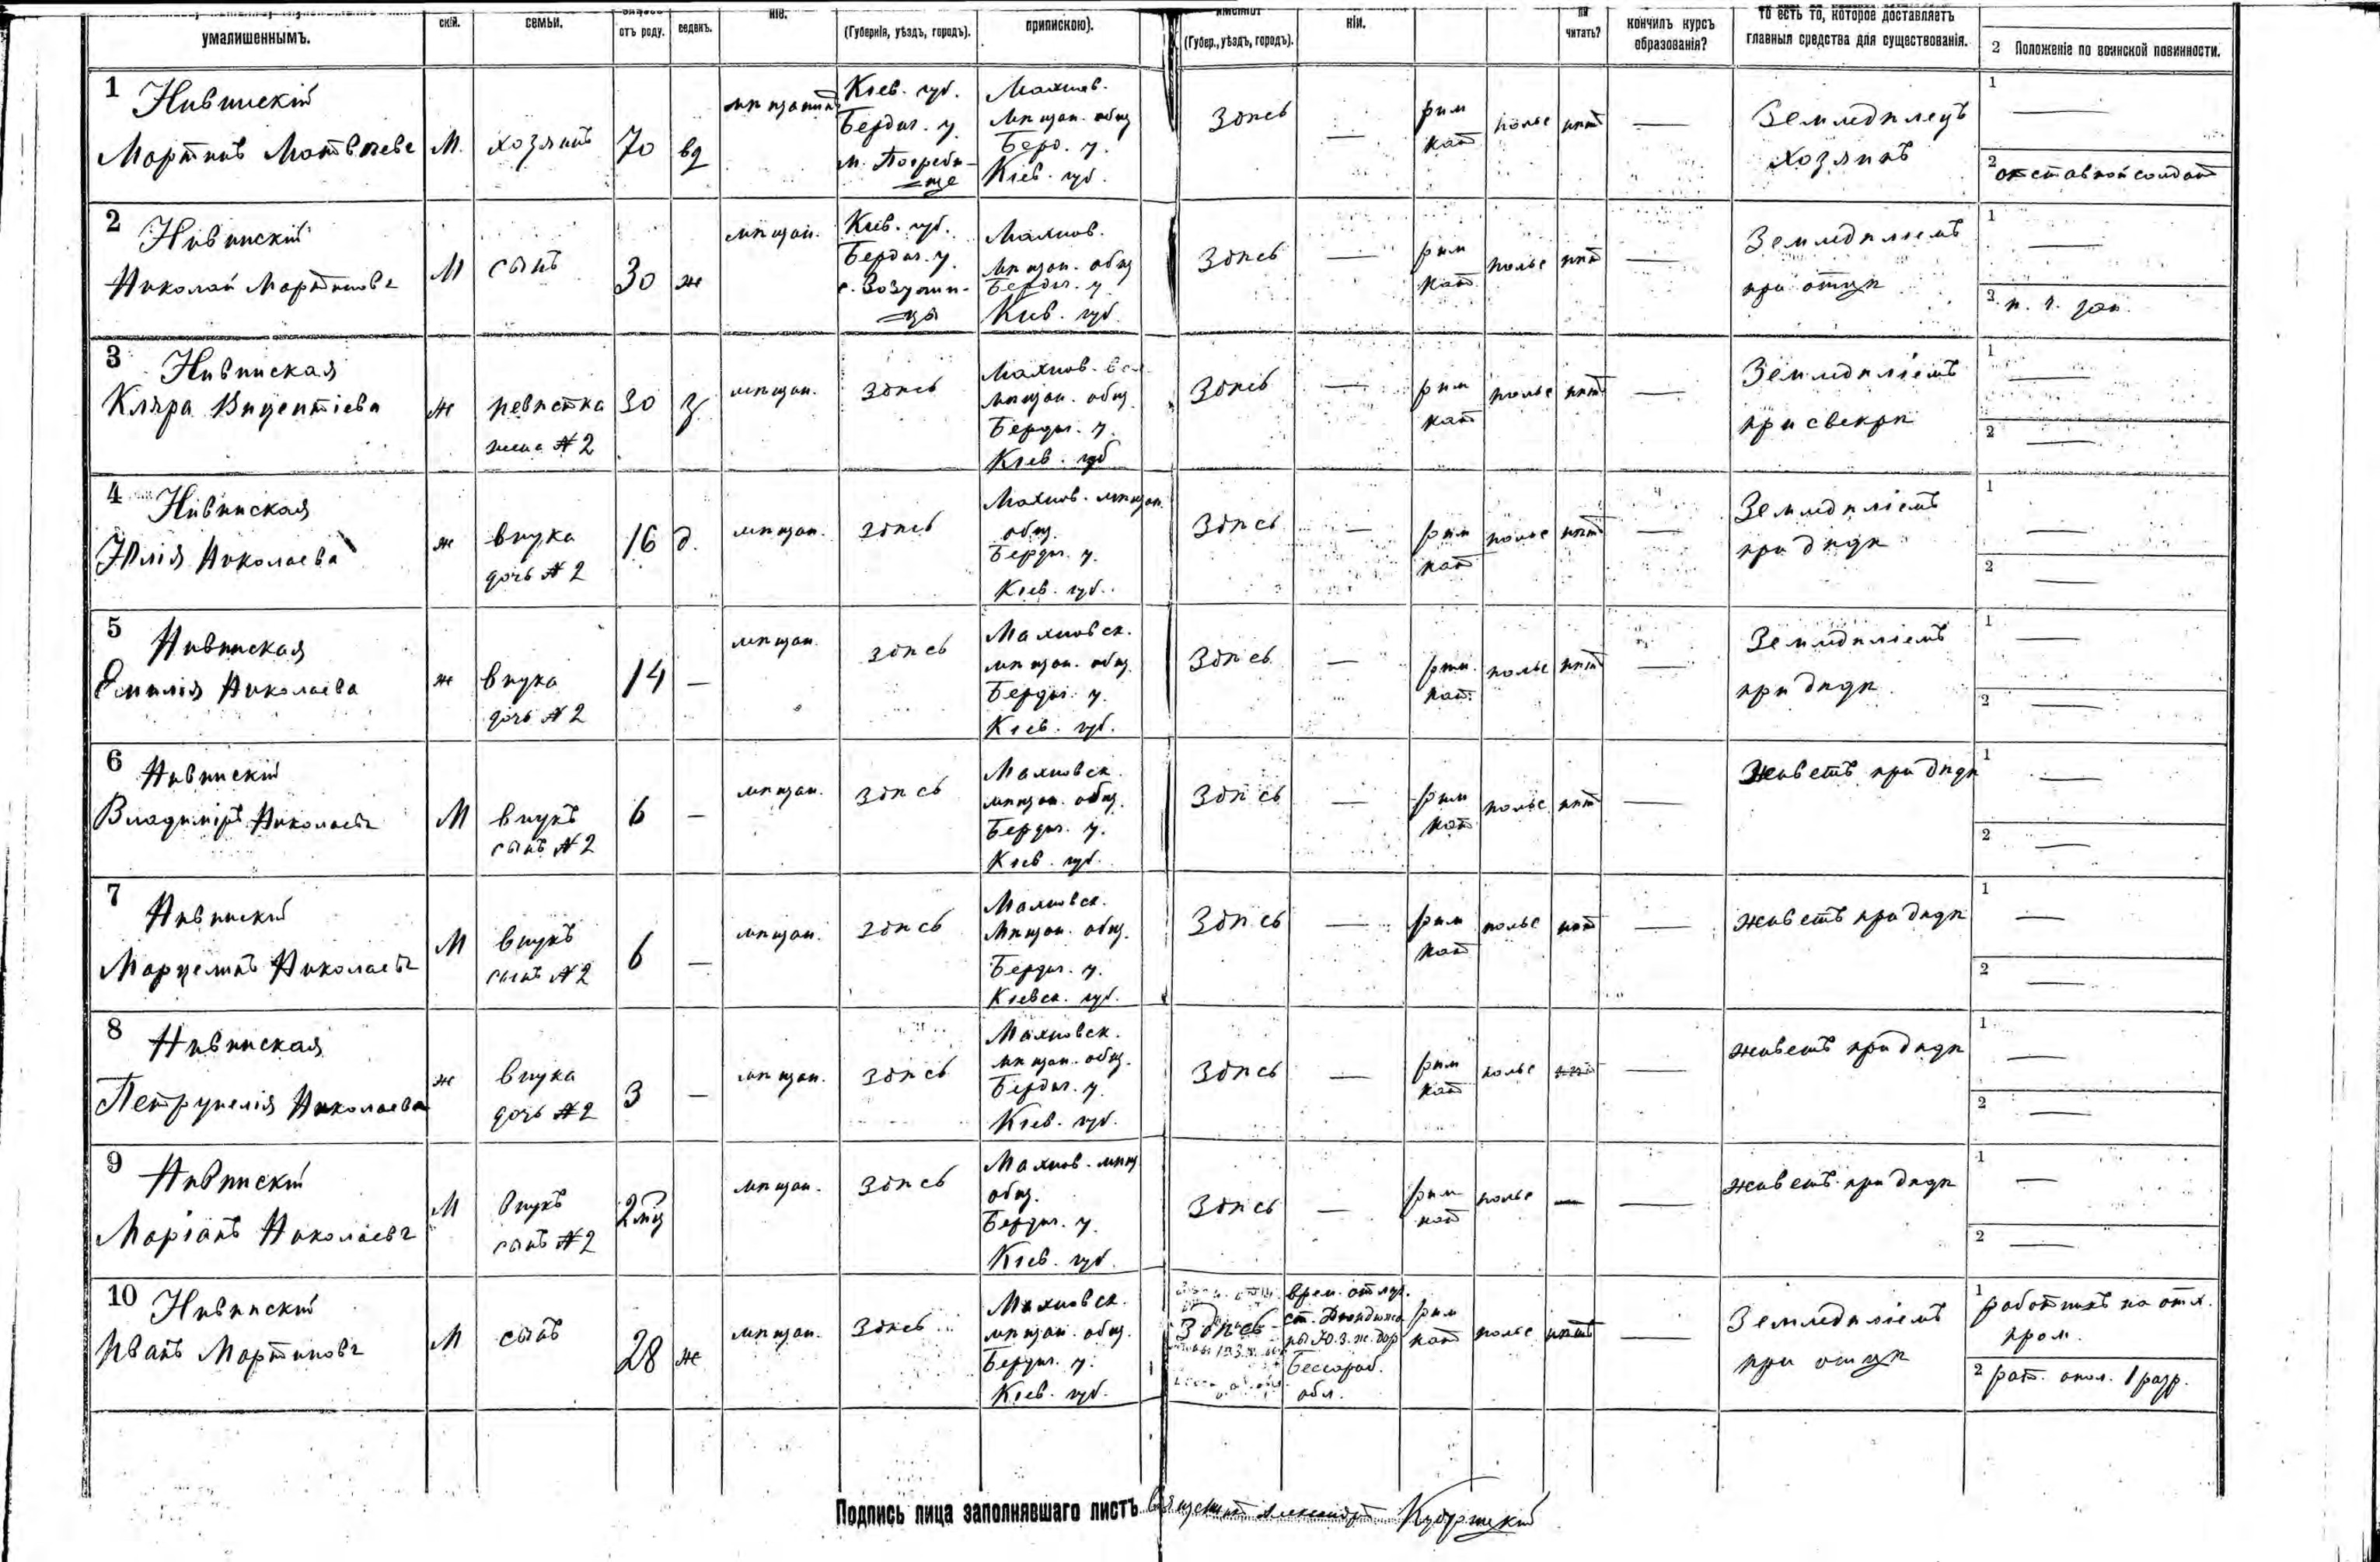 умалишеннымъ. скій. семьи. отъ роду. веденъ. ніе. (Губернія, уѣздъ, городъ). припискою). (Губер., уѣздъ, городъ). ніи. читать? кончилъ курсъ образованія? то есть то, которое доставляетъ главныя средства для существованія. 2 Положеніе по воинской повинности.
1 Нивинскій
Мартинъ Матвѣевъ М. хозяинъ 70 вд мѣщанинъ
Кіев. губ.
Бердич. у.
м. Погреби-
ще
Махнов.
мѣщан. общ
Берд. у.
Кіев. губ.
Здѣсь — рим кат польс нѣтъ —
Земледѣлецъ
хозяинъ
1 —
2 отставной солдатъ
2 Нивинскій
Николай Мартиновъ М сынъ 30 ж мѣщан.
Кіев. губ.
Бердич. у.
с. Зозулин-
цы
Махнов.
мѣщан. общ
Бердич. у.
Кіев. губ.
Здѣсь — рим кат польс нѣтъ —
Земледѣліемъ
при отцѣ
1 —
2
3 Нивинская
Клара Вицентіева ж невѣстка
жена № 2
30 з мѣщан. здѣсь
Махнов.
мѣщан. общ.
Бердич. у.
Кіев. губ
Здѣсь — рим кат польс нѣтъ —
Земледѣліемъ
при свекрѣ
1 —
2 —
4 Нивинская
Юлія Николаева ж внука
дочь № 2
16 д. мѣщан. здѣсь
Махнов. мѣщан.
общ.
Бердич. у.
Кіев. губ.
Здѣсь — рим кат польс нѣтъ —
Земледѣліемъ
при дѣдѣ
1 —
2 —
5 Нивинская
Емилія Николаева ж внука
дочь № 2
14 — мѣщан. здѣсь
Махновск.
мѣщан. общ.
Бердич. у.
Кіев. губ.
Здѣсь — рим. кат. польс нѣтъ —
Земледѣліемъ
при дѣдѣ
1 —
2 —
6 Нивинскій
Владиміръ Николаевъ М внукъ
сынъ № 2
6 — мѣщан. здѣсь
Махновск.
мѣщан. общ.
Бердич. у.
Кіев. губ.
Здѣсь — рим кат польс нѣтъ —
Живетъ при дѣдѣ
1 —
2 —
7 Нивинскій
Марцелинъ Николаевъ М внукъ
сынъ № 2
6 — мѣщан. здѣсь
Махновск.
мѣщан. общ.
Бердич. у.
Кіевск. губ.
Здѣсь — рим кат польс нѣтъ —
живетъ при дѣдѣ
1 —
2 —
8 Нивинская
Петрунелія Николаева ж внука
дочь № 2
3 — мѣщан. здѣсь
Махновск.
мѣщан. общ.
Бердич. у.
Кіев. губ.
Здѣсь — рим кат польс —
живетъ при дѣдѣ
1 —
2 —
9 Нивинскій
Маріанъ Николаевъ М внукъ
сынъ № 2
2 мц мѣщан. здѣсь
Махнов. мѣщ
общ.
Бердич. у.
Кіев. губ.
Здѣсь — рим кат польс — —
живетъ при дѣдѣ
1 —
2 —
10 Нивинскій
Иванъ Мартиновъ М сынъ 28 ж мѣщан. Здѣсь
Махновск.
мѣщан. общ.
Бердич. у.
Кіев. губ.
Здѣсь
врем. отлуч.
ст.
Ю. З. ж. дор
Бессараб.
обл.
рим кат польс нѣтъ —
Земледѣліемъ
при отцѣ
1 работникъ на отх.
пром.
2 рат. опол. 1 разр.
Подпись лица заполнявшаго листъ Священникъ Александръ